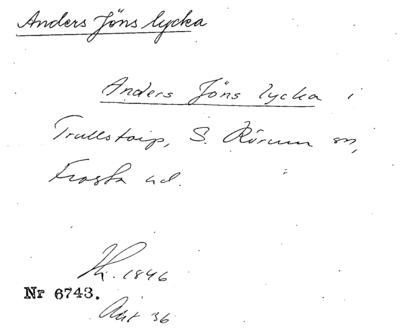 Anders Jöns lycka
Anders Jöns lycka i
Trullstorp, S. Rörum sn,
Frosta hd.
Lt. 1846
Nr 6743.
Akt 36